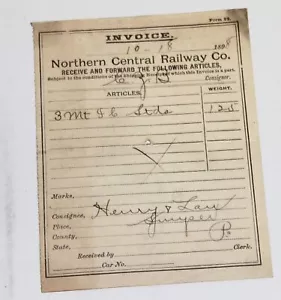 Form 32
INVOICE.
10-18 1898
Northern Central Railway Co.
RECEIVE AND FORWARD THE FOLLOWING ARTICLES,
Subject to the conditions of the Shipping Receipt of which this Invoice is a part.
Consignor.
ARTICLES. WEIGHT.
3 Mt & C Stds 125
Marks,
Consignee, Henry & Law
Place,
County, Pa
State,
Received by Clerk.
Car No.